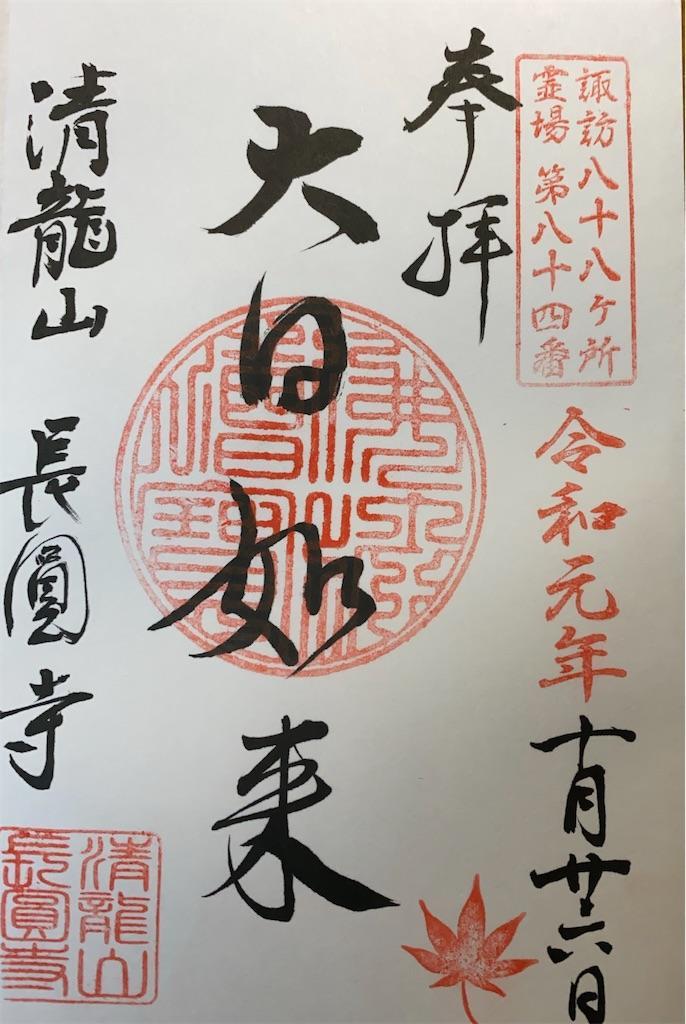 諏訪八十八ヶ所
霊場 第八十四番
令和元年
十月廿六日
奉拝
大日如来
佛法僧寶
清龍山 長圓寺
清龍山
長圓寺